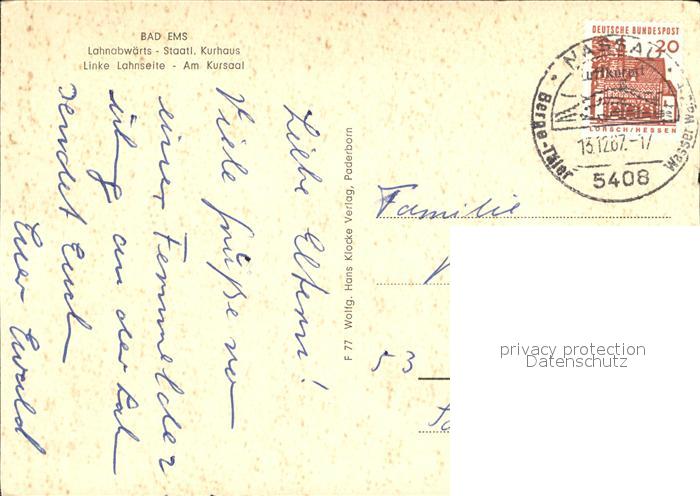 BAD EMS
Lahnabwärts - Staatl. Kurhaus
Linke Lahnseite - Am Kursaal
Liebe Eltern!
Viele Grüße von
einer Fernmelder
übung an der Lahn
sendet Euch
Euer Ewald
F 77 Wolfg. Hans Klocke Verlag, Paderborn
DEUTSCHE BUNDESPOST
20
LORSCH/HESSEN
NASSAU
Luftkurort
Berge-Täler
13.12.67.-17
5408
Familie
53
privacy protection
Datenschutz